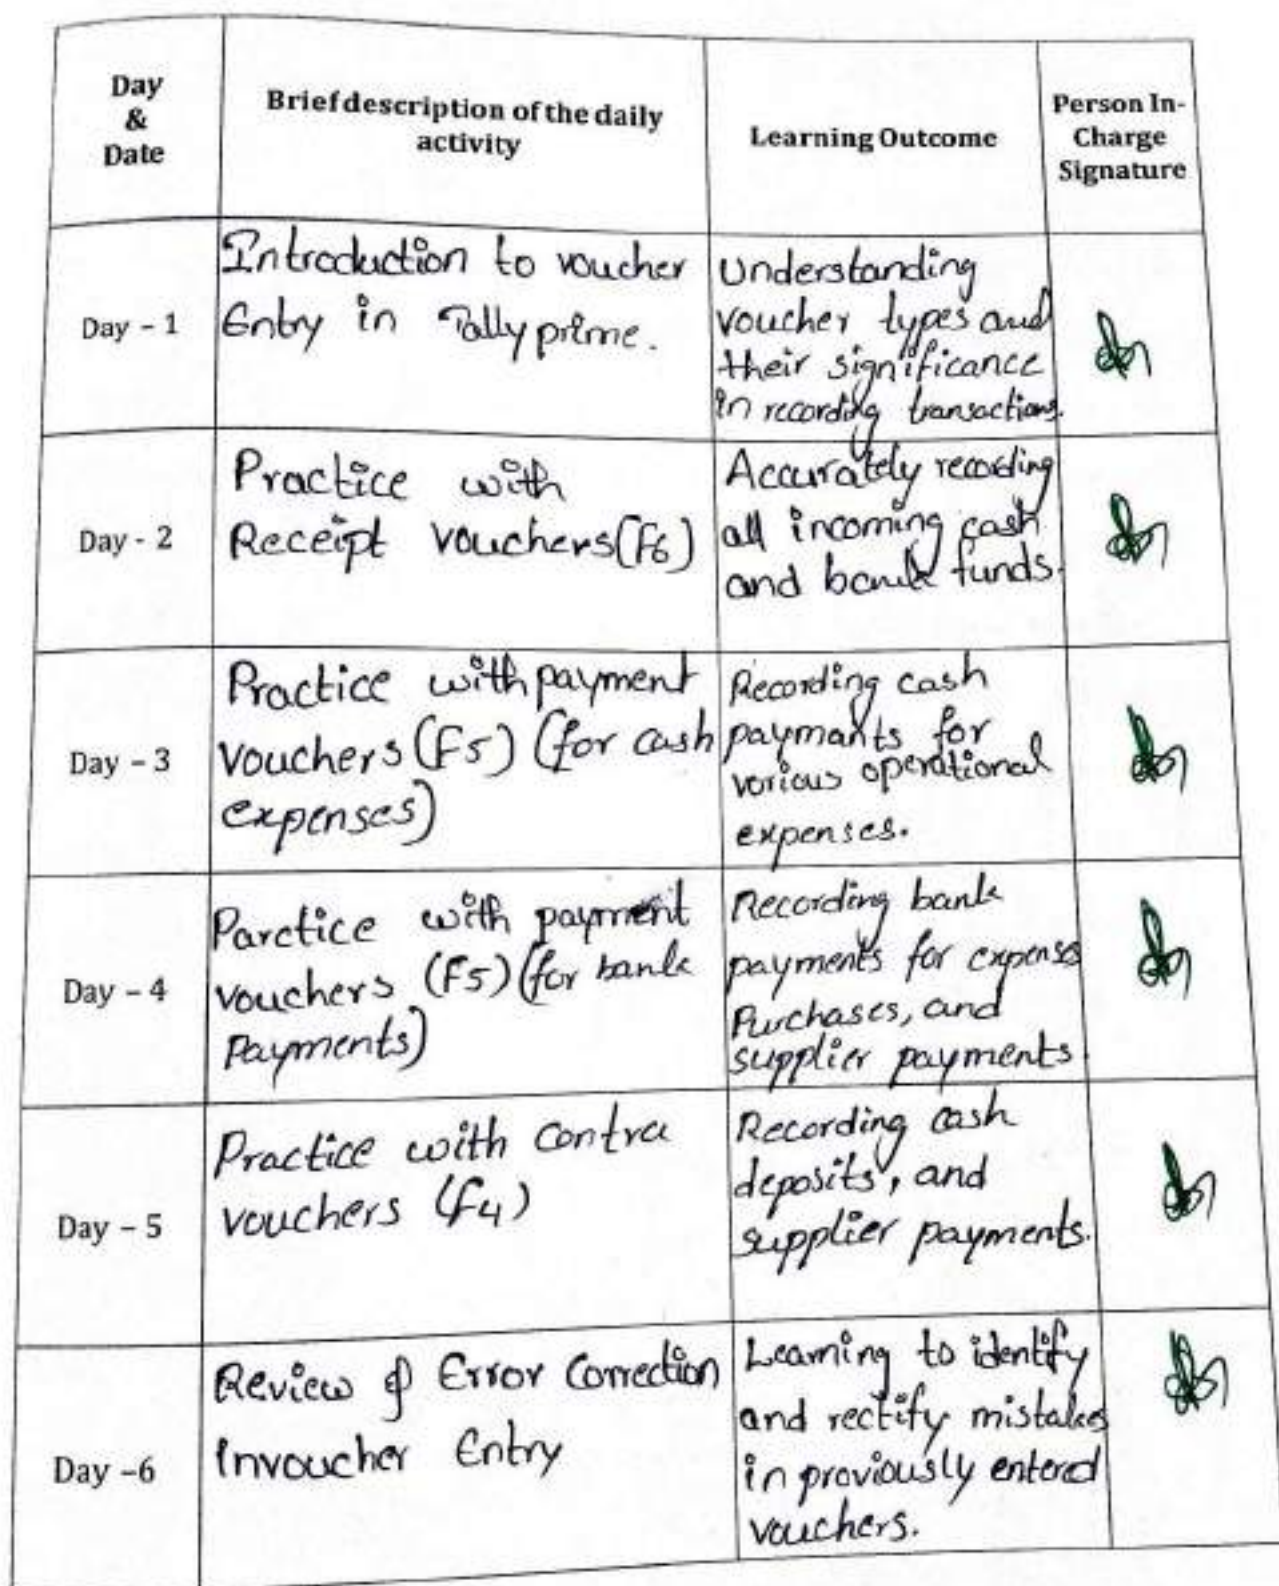 Day
&
Date
Brief description of the daily
activity
Learning Outcome
Person In-
Charge
Signature
Day - 1
Introduction to voucher
Entry in Tally prime.
Understanding
voucher types and
their significance
in recording transactions.
Day - 2
Practice with
Receipt Vouchers (F6)
Accurately recording
all incoming cash
and bank funds.
Day - 3
Practice with payment
Vouchers (F5) (for cash
expenses)
Recording cash
paymants for
various operational
expenses.
Day - 4
Parctice with payment
vouchers (F5) (for bank
Payments)
Recording bank
payments for expenses
Purchases, and
supplier payments.
Day - 5
Practice with Contra
vouchers (F4)
Recording cash
deposits, and
supplier payments.
Day -6
Review & Error Correction
Invoucher Entry
Learning to identify
and rectify mistakes
in previously entered
vouchers.